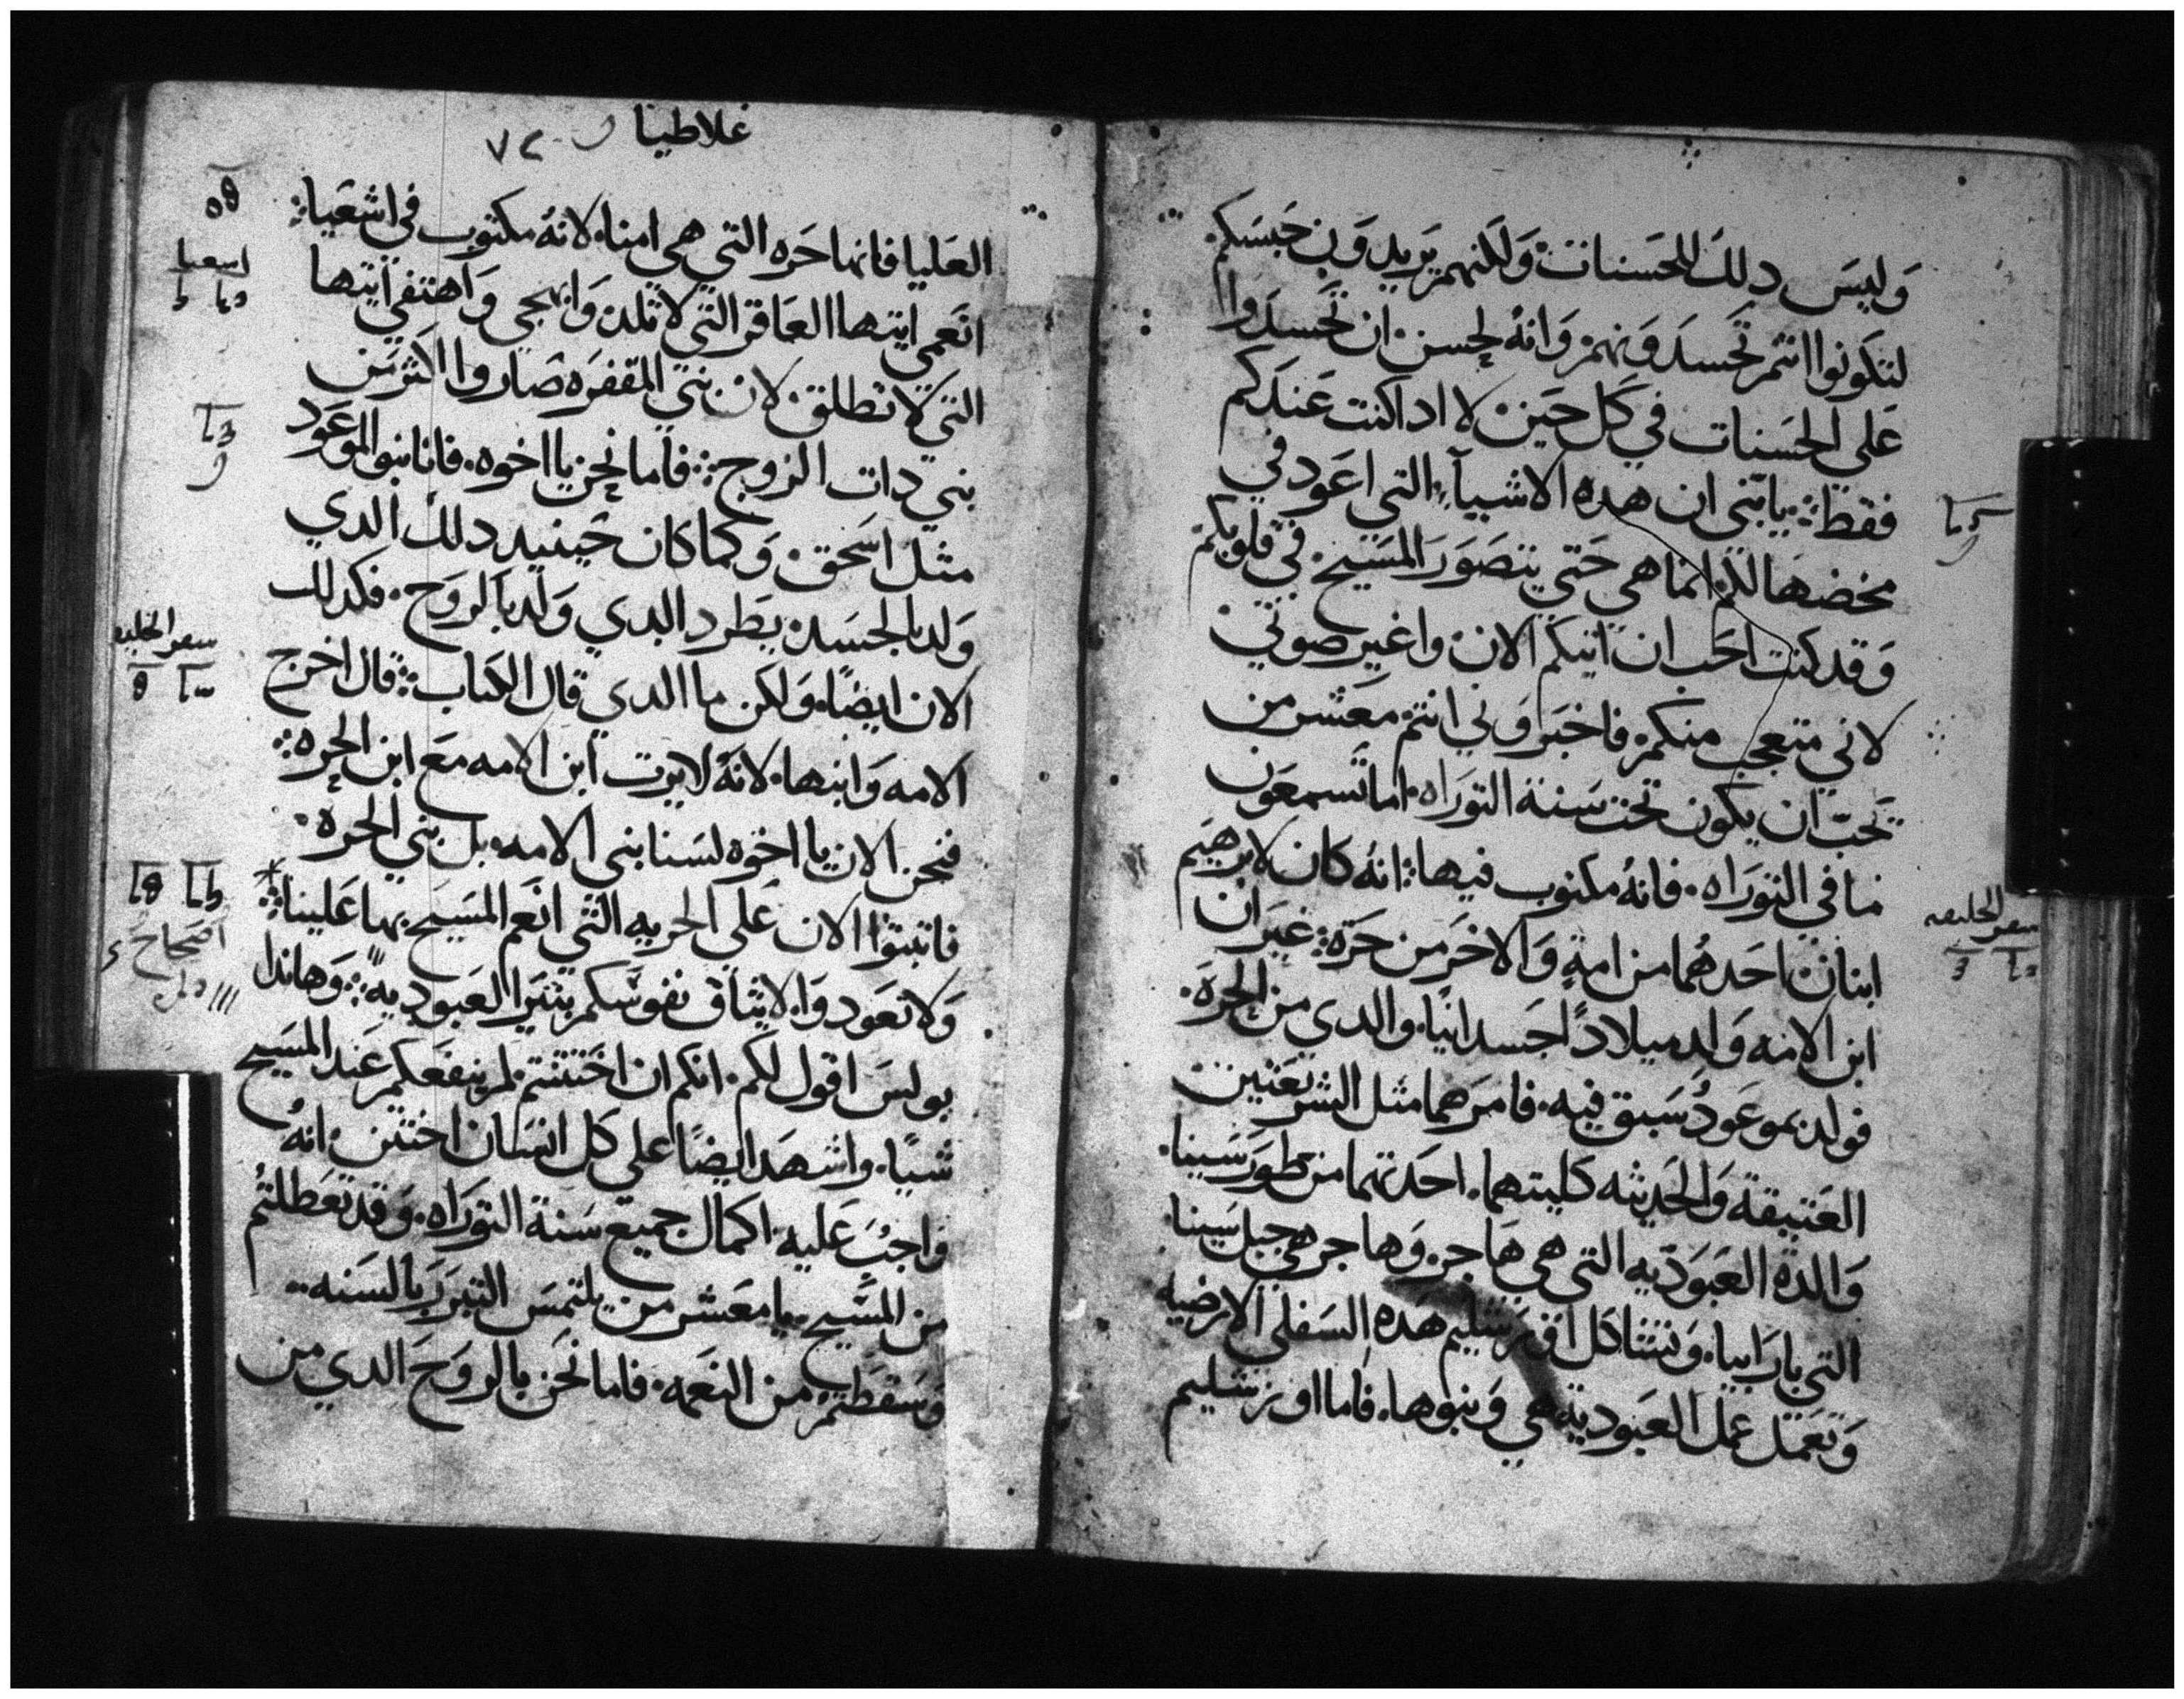 وَليسَ دلك للحَسنات وَلكنهم يَريدوَن حَبسَكم
لتكوَنوا انتم تحَسدَوَنهم وَانهُ لحسن ان تحَسدَوا
عَلي الحَسَنات في كل حَين لا ادا كنت عَندَكم
فقط يا بَني ان هده الاشيآ التي اعَود في
مخضها لكم انما هي حَتي يتصَوَر المسَيح في قلوبكم
وَقد كنت احَب ان اتيكم الان واغير صوتي
لاني متعجب منكم فاخبَروَني انتم معَشر من
تحَبّ ان يكون تحت سَنة التوَراه اما تسمعَون
ما في التوَراه فانهُ مكتوب فيها انهُ كان لابرهيَم
ابنان احَدهُما من امةٍ وَالاخرَ من حَرَة غيرَ ان
ابن الامه وَلد ميلادًا جَسدانيًا والدي من الحرَة
فولد بموعَودٍ سَبق فيه فامرَهما مثل الشرَيعَتين
العَتيقة وَالحَديثه كليتهما احَدتهما من طورَ سَينا
وَالدة العَبَوَديه التي هي هَاجر وَهاجر هي جبل سَينا
التي بارَابيا وَتشاكل اورَشليم هَده السَفلي الارضيه
وَتعَمَل عمل العَبَوديه هي وَبنوها فاما اورَشليم
سفر الخليقه
غلاطيا
٧٢
العَليا فانها حَره التي هي امنا لانهُ مكتوب في اشعَيا
انعَمي ايتها العَاقر التي لا تلد وَابهجي وَاهتفي ايتها
التي لا تطلق لان بني المقفرَه صَاروا اكثر من
بني دات الزوج فاما نحن يا اخوه فانا بنو الموعَود
مثل اسَحق وَكما كان حَينيد دلك الدي
وَلد بالجسَد يطرد الدي وَلد بالروَح فكدلك
الان ايضًا وَلكن ما الدي قال الكتاب قال اخرج
الامه وَابنها لانهُ لا يرت ابن الامه معَ ابن الحره
فنحن الان يا اخوَه لسَنا بني الامه بل بني الحره
فاتبتوا الان عَلي الحريه التي انعَم المسَيح بها عَلينا
وَلا تعَودوَا لايثاق نفوسَكم بنَير العَبوديه وَهاندا
بولسَ اقول لكم انكم ان اختتنتم لم ينفعَكم عَند المسَيح
شيًا واشهدَ ايضًا علي كل انسَان اختتن انهُ
وَاجبُ عَليه اكمال جميع سَنة التوَراه وَقد تعَطلتُم
من المسَيح يا معَشر من يلتمسَ التبرَرَ بالسَنه
وَسَقطتم من النعَمه فاما نحَن بالروَحَ الدي من
اسعيا
سفر الخليقه
اصحاح